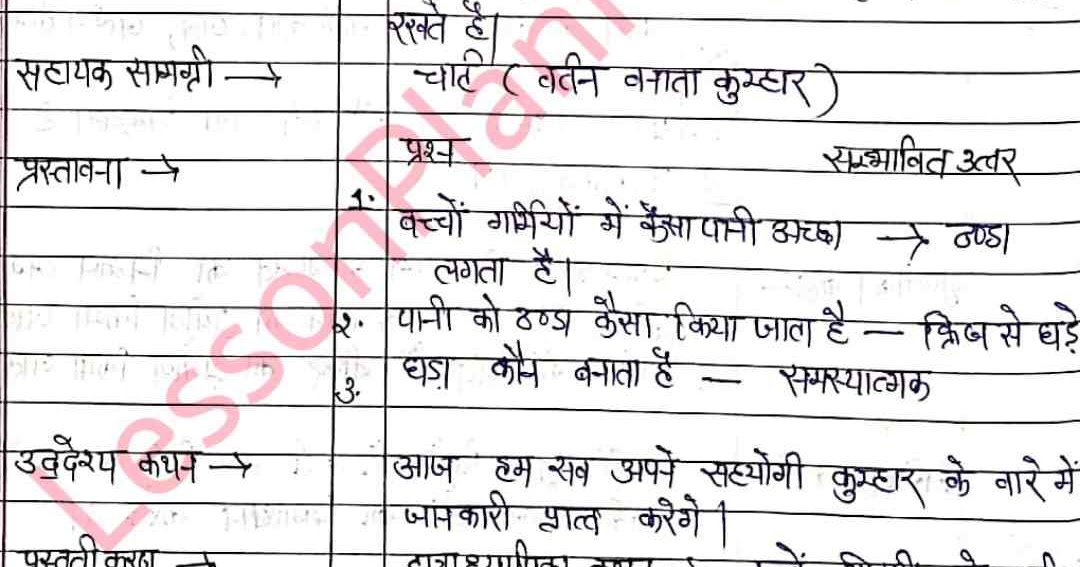 रखते है।
सहायक सामग्री → चार्ट ( वर्तन वनाता कुम्हार )
प्रस्तावना → प्रश्न सम्भावित उत्तर
1. वच्चों गर्मियों में कैसा पानी अच्छा → ठण्डा
लगता है।
२. पानी को ठण्डा कैसा किया जाता है — फ्रिज से घड़े
3. घड़ा कौन बनाता है — समस्यात्मक
उद्देश्य कथन → आज हम सव अपने सहयोगी कुम्हार के वारे में
जानकारी प्राप्त करेगे।
प्रस्तुतीकरण →
LessonPlan